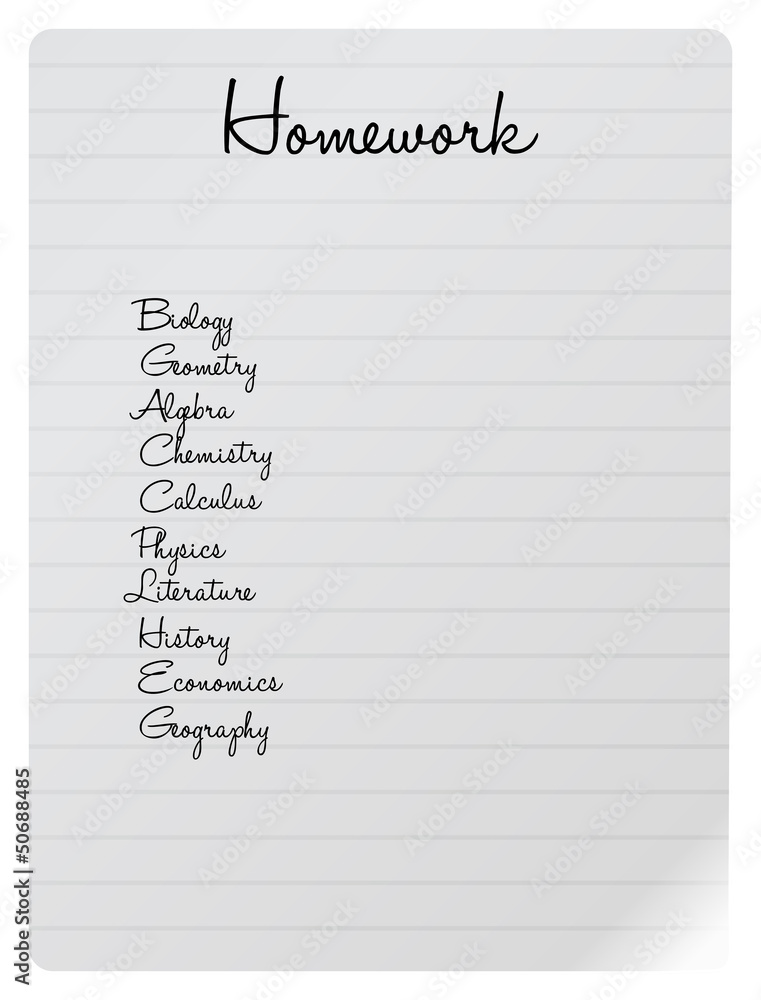 Homework
Biology
Geometry
Algebra
Chemistry
Calculus
Physics
Literature
History
Economics
Geography
Adobe Stock | #50688485